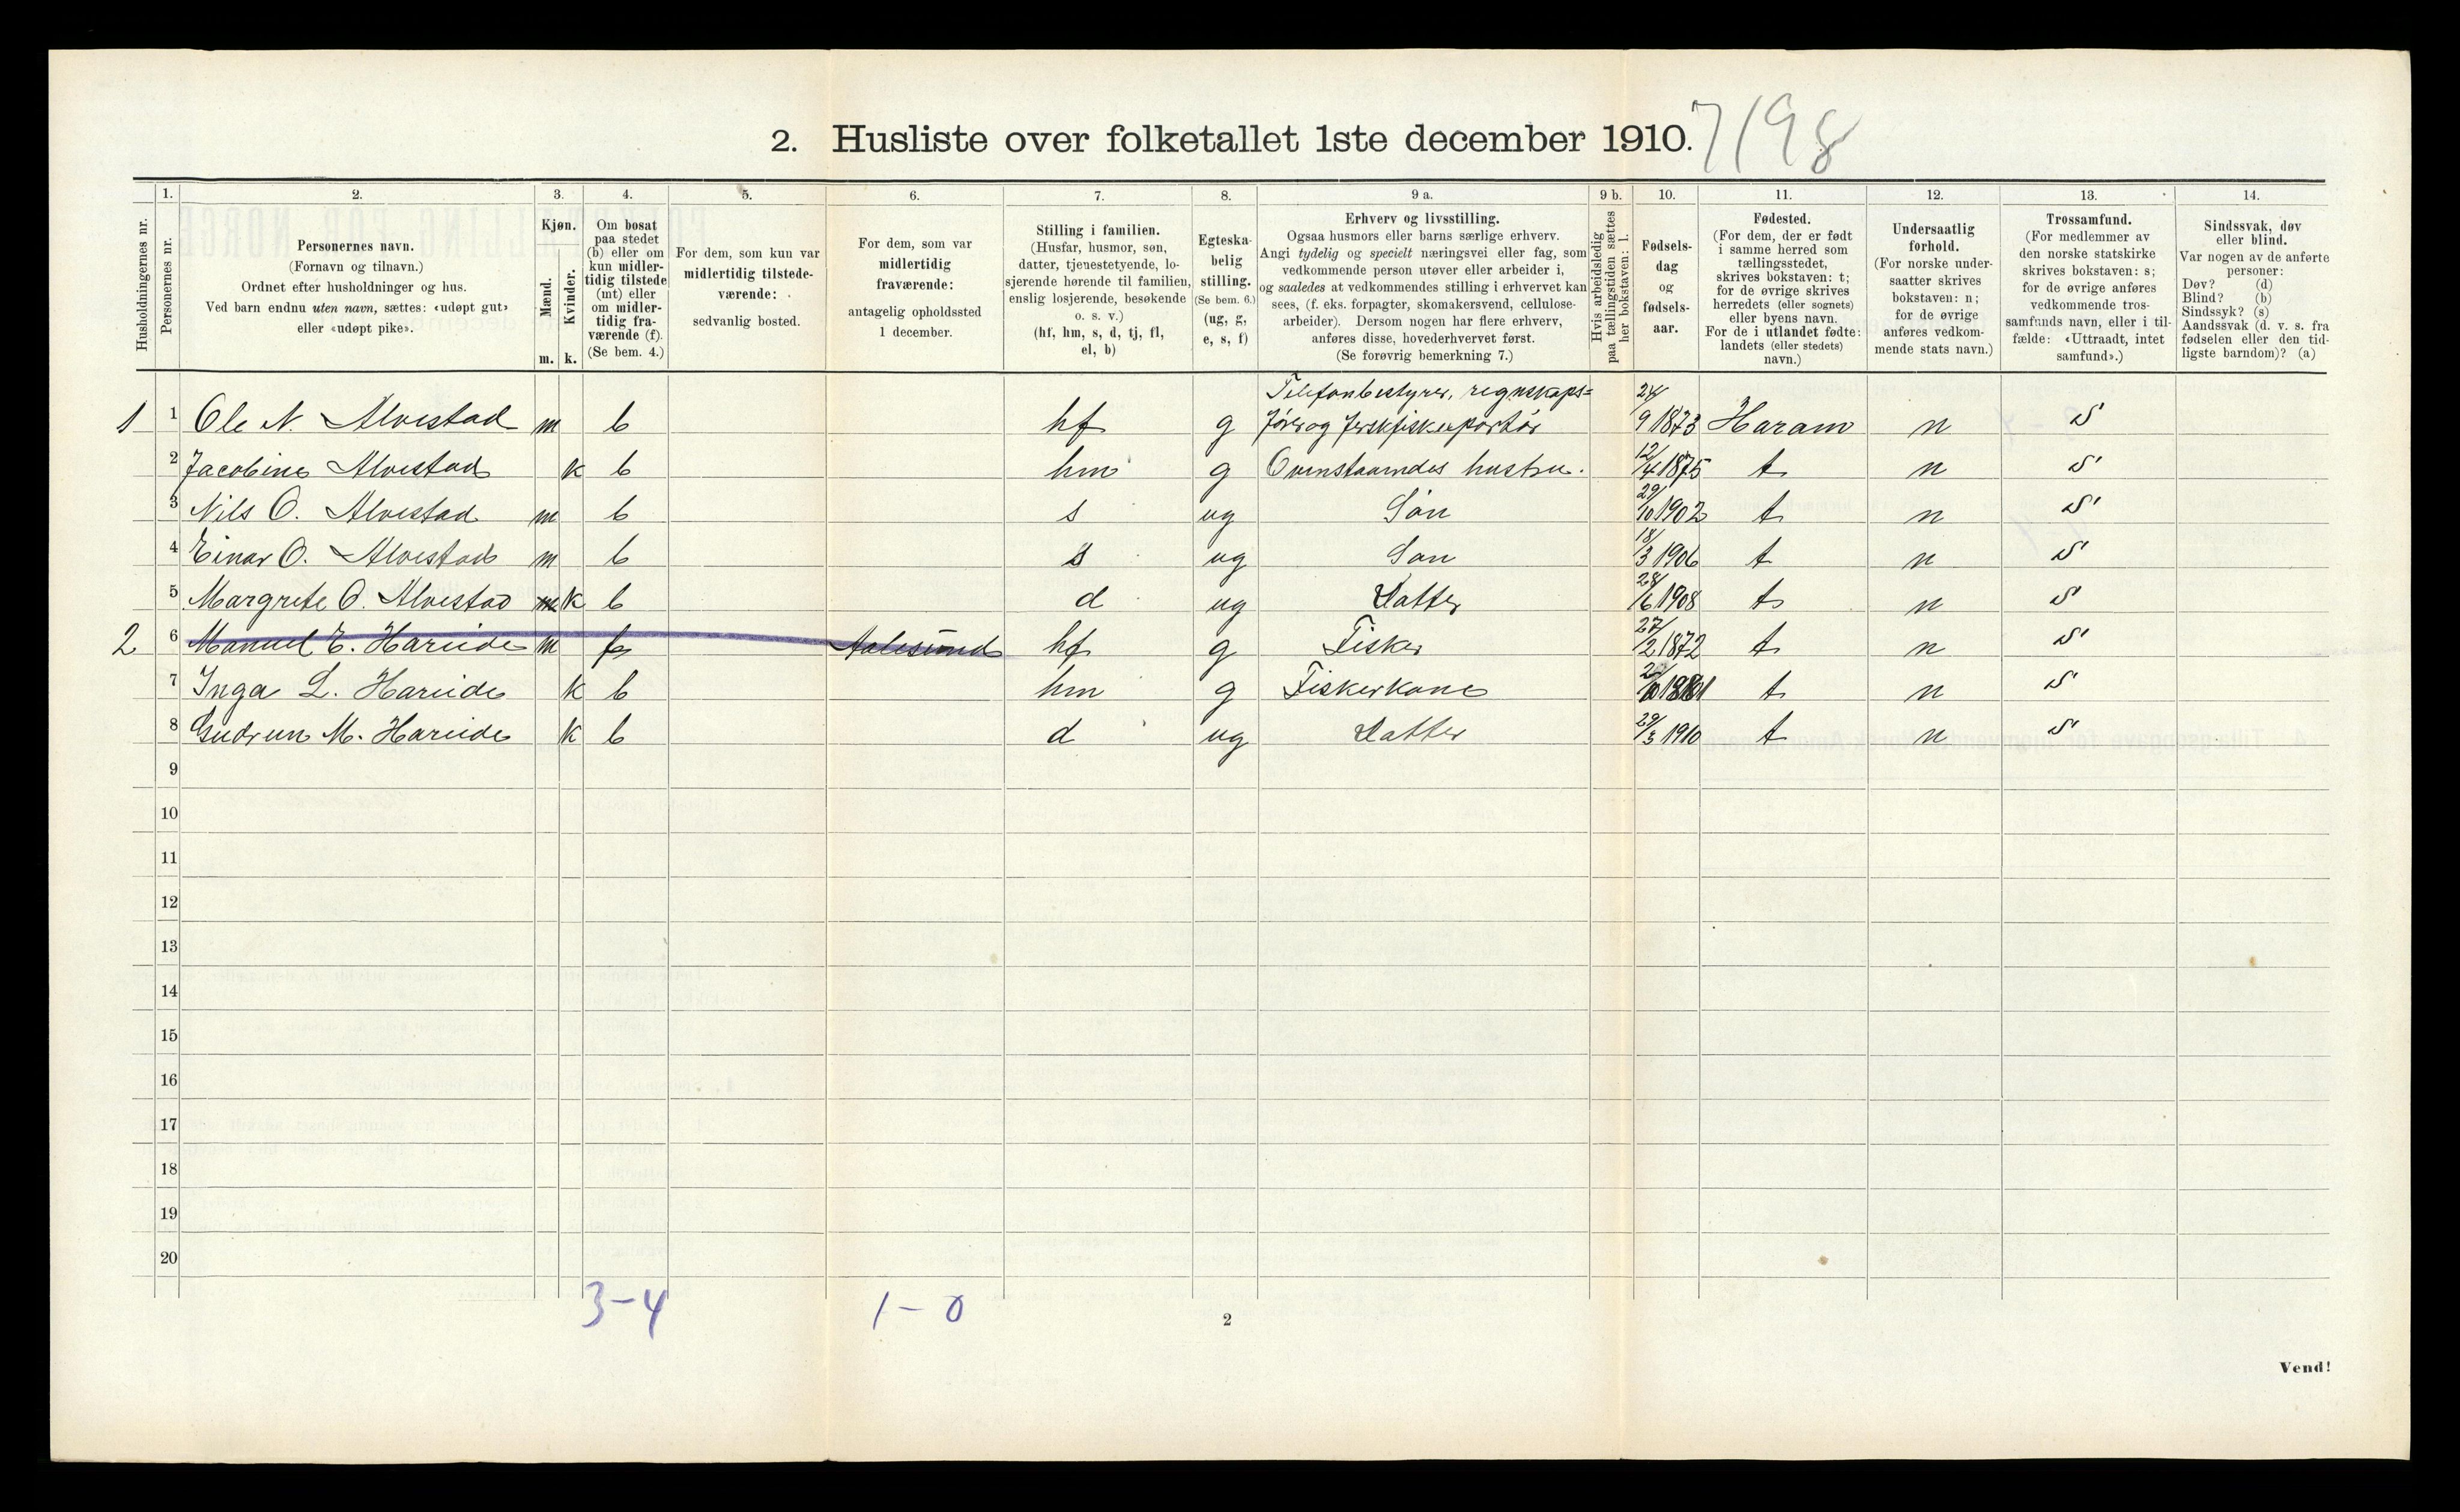 2. Husliste over folketallet 1ste december 1910. 7/98
Husholdningernes nr.
1.
Personernes nr.
2.
Personernes navn.
(Fornavn og tilnavn.)
Ordnet efter husholdninger og hus.
Ved barn endnu uten navn, sættes: «udøpt gut»
eller «udøpt pike».
3.
Kjøn.
Mænd.
Kvinder.
m. k.
4.
Om bosat
paa stedet
(b) eller om
kun midler-
tidig tilstede
(mt) eller
om midler-
tidig fra-
værende (f).
(Se bem. 4.)
5.
For dem, som kun var
midlertidig tilstede-
værende:
sedvanlig bosted.
6.
For dem, som var
midlertidig
fraværende:
antagelig opholdssted
1 december.
7.
Stilling i familien.
(Husfar, husmor, søn,
datter, tjenestetyende, lo-
sjerende hørende til familien,
enslig losjerende, besøkende
o. s. v.)
(hf, hm, s, d, tj, fl,
el, b)
8.
Egteska-
belig
stilling.
(Se bem. 6.)
(ug, g,
e, s, f)
9 a.
Erhverv og livsstilling.
Ogsaa husmors eller barns særlige erhverv.
Angi tydelig og specielt næringsvei eller fag, som
vedkommende person utøver eller arbeider i,
og saaledes at vedkommendes stilling i erhvervet kan
sees, (f. eks. forpagter, skomakersvend, cellulose-
arbeider). Dersom nogen har flere erhverv,
anføres disse, hovederhvervet først.
(Se forøvrig bemerkning 7.)
9 b.
Hvis arbeidsledig
paa tællingstiden sættes
her bokstaven: l.
10.
Fødsels-
dag
og
fødsels-
aar.
11.
Fødested.
(For dem, der er født
i samme herred som
tællingsstedet,
skrives bokstaven: t;
for de øvrige skrives
herredets (eller sognets)
eller byens navn.
For de i utlandet fødte:
landets (eller stedets)
navn.)
12.
Undersaatlig
forhold.
(For norske under-
saatter skrives
bokstaven: n;
for de øvrige
anføres vedkom-
mende stats navn.)
13.
Trossamfund.
(For medlemmer av
den norske statskirke
skrives bokstaven: s;
for de øvrige anføres
vedkommende tros-
samfunds navn, eller i til-
fælde: «Uttraadt, intet
samfund».)
14.
Sindssvak, døv
eller blind.
Var nogen av de anførte
personer:
Døv? (d)
Blind? (b)
Sindssyk? (s)
Aandssvak (d. v. s. fra
fødselen eller den tid-
ligste barndom)? (a)
Telefonbestyrer, regnskaps-
1 1 Ole N. Alvestad m b hf g fører og ferskfiskexportør 24/9 1873 Haram n s
2 Jacobine Alvestad k b hm g Ovenstaaendes hustru. 12/4 1875 t n s
3 Nils O. Alvestad m b s ug Søn 29/10 1902 t n s
4 Einar O. Alvestad m b s ug Søn 18/3 1906 t n s
5 Margrete O. Alvestad m k b d ug Datter 28/6 1908 t n s
2 6 Manuel E. Hareide m f Aalesund hf g Fisker 27/2 1872 t n s
7 Inga L. Hareide k b hm g Fiskerkone t n s
8 Gudrun M. Hareide k b d ug Datter 29/3 1910 t n s
9
10
11
12
13
14
15
16
17
18
19
20
3-4 1-0
2
Vend!